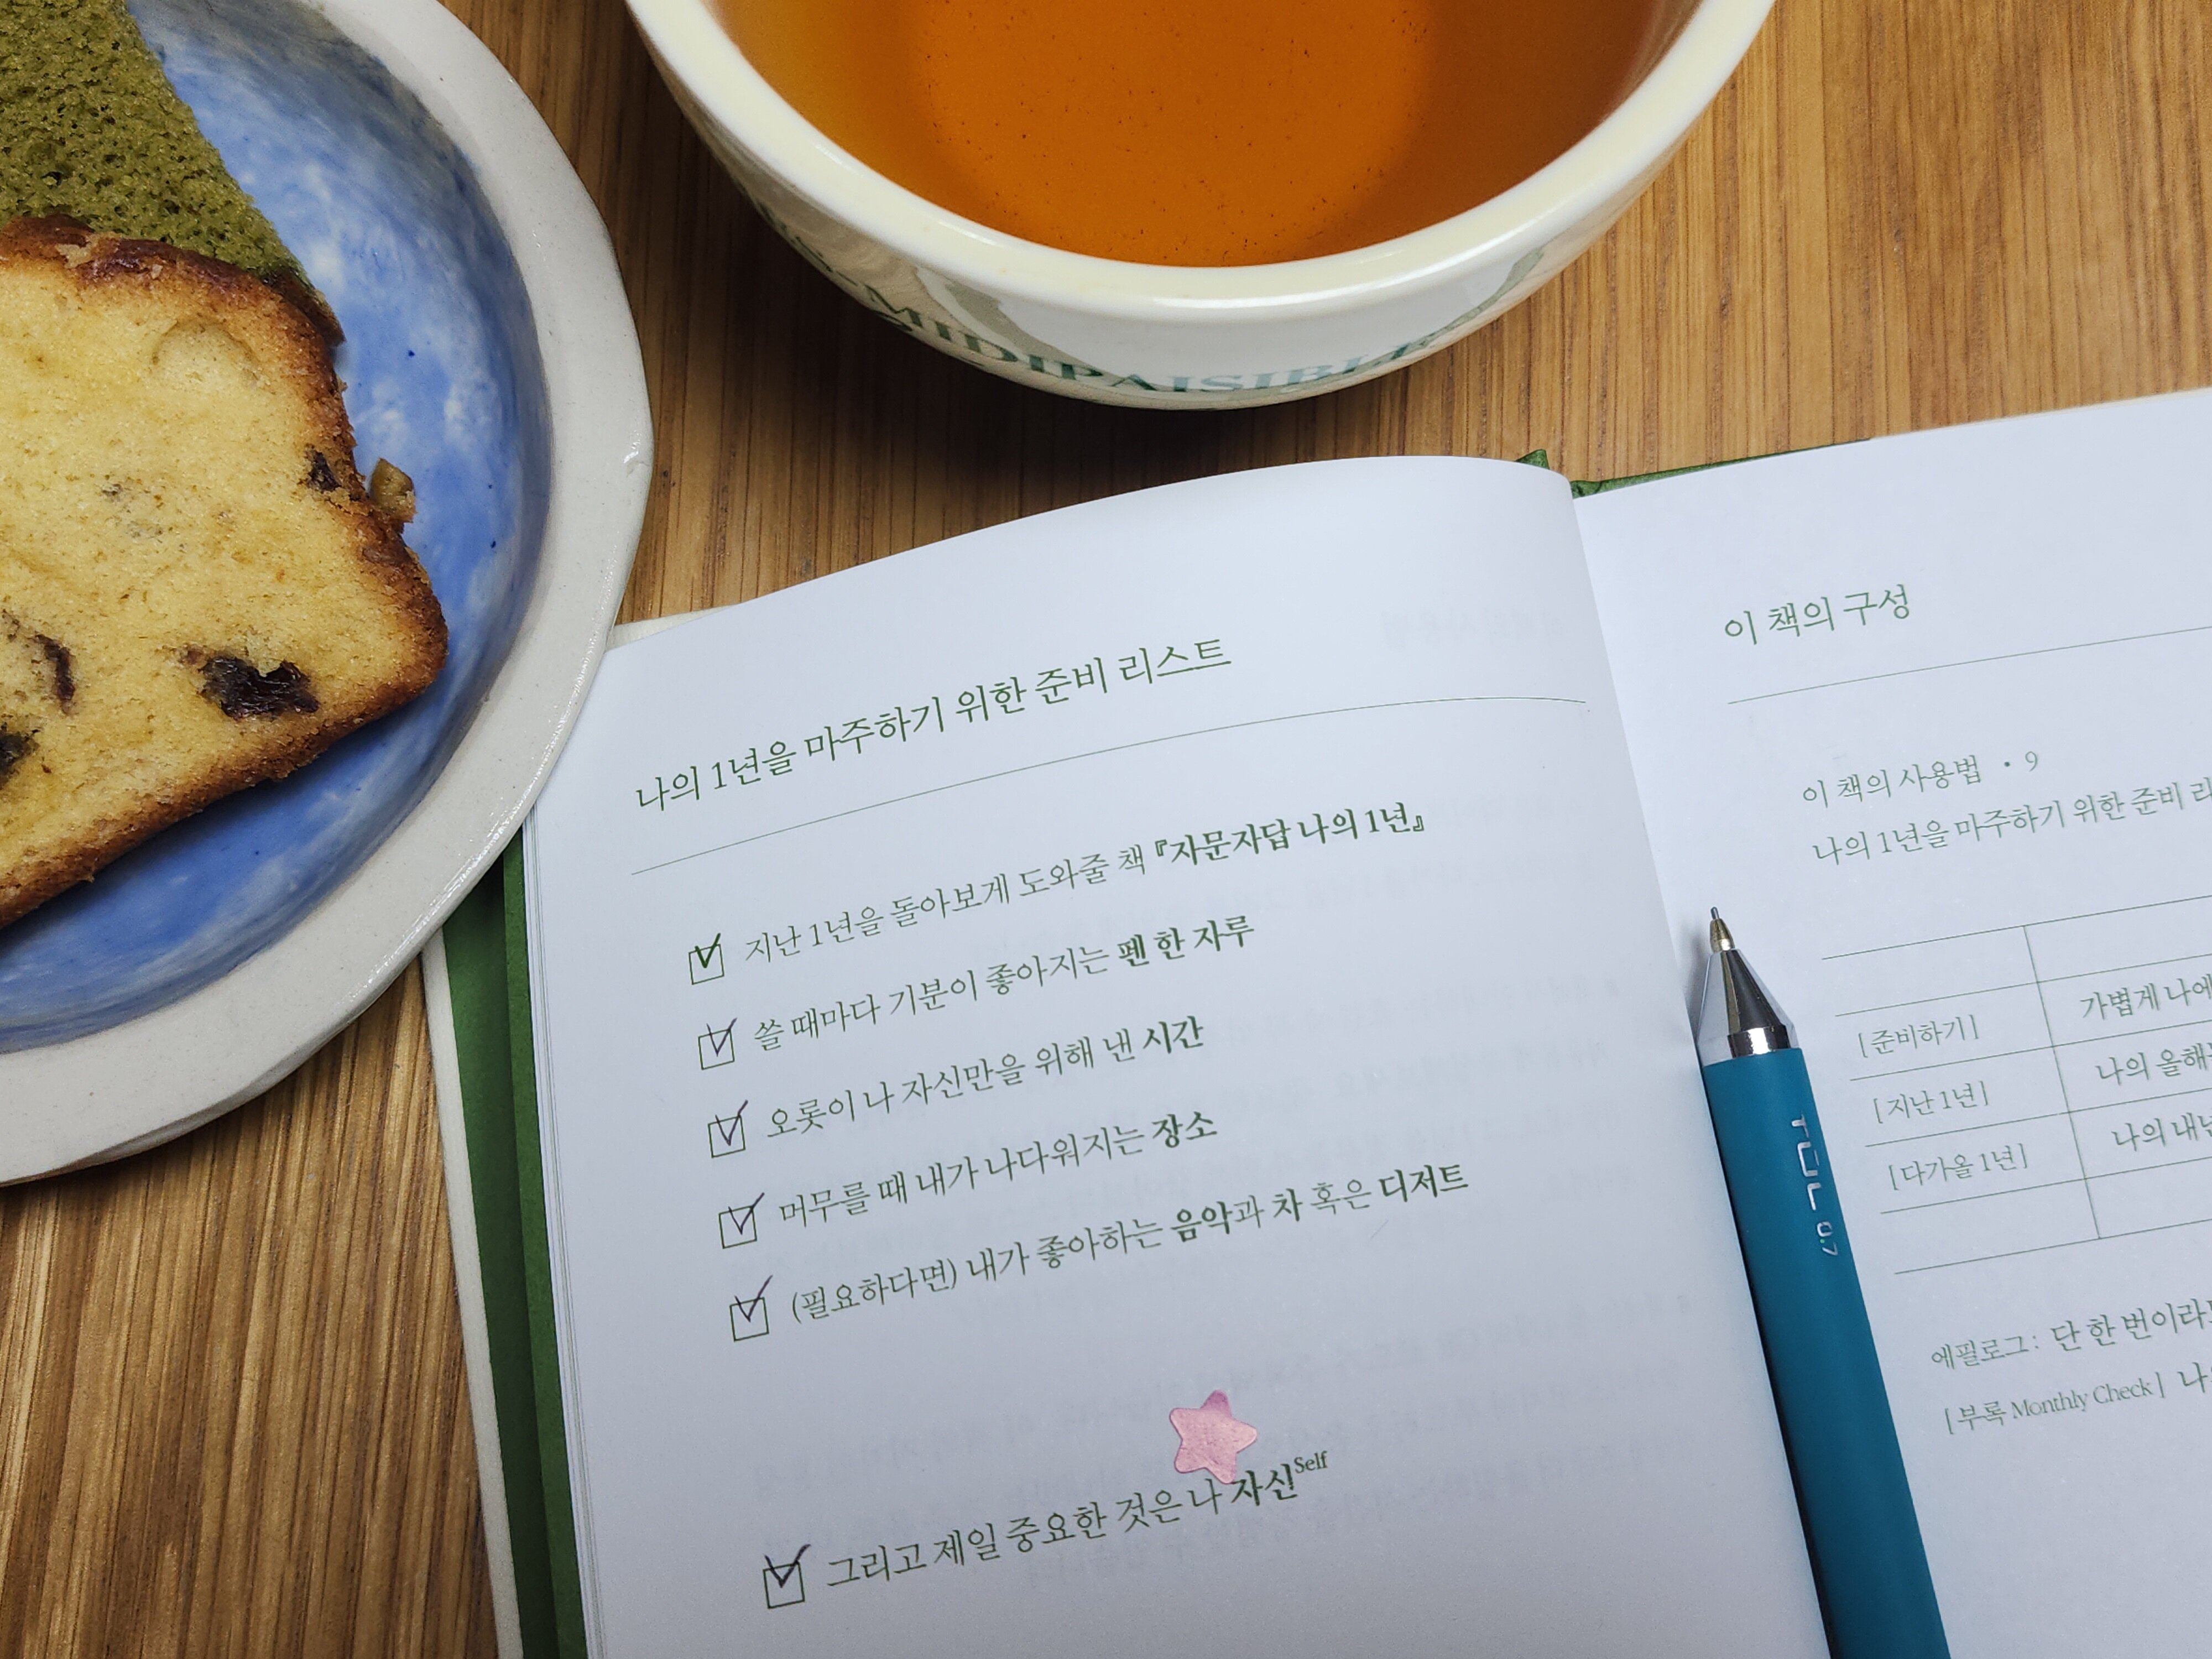 MIDIPAISIBLE
나의 1년을 마주하기 위한 준비 리스트
지난 1년을 돌아보게 도와줄 책 『자문자답 나의 1년』
쓸 때마다 기분이 좋아지는 펜 한 자루
오롯이 나 자신만을 위해 낸 시간
머무를 때 내가 나다워지는 장소
(필요하다면) 내가 좋아하는 음악과 차 혹은 디저트
그리고 제일 중요한 것은 나 자신 Self
이 책의 구성
이 책의 사용법 • 9
나의 1년을 마주하기 위한 준비 리
[준비하기] 가볍게 나에
[지난 1년] 나의 올해
[다가올 1년] 나의 내년
에필로그: 단 한 번이라
[부록 Monthly Check] 나
TUL 0.7